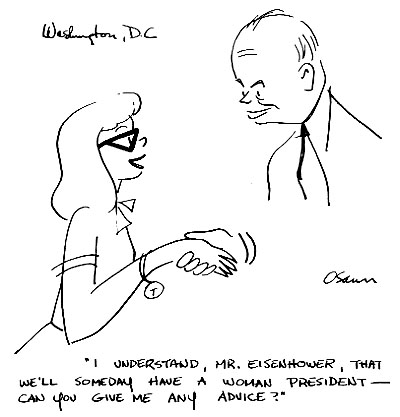 Washington, D.C
Osann
T
"I UNDERSTAND, MR. EISENHOWER, THAT
WE'LL SOMEDAY HAVE A WOMAN PRESIDENT—
CAN YOU GIVE ME ANY ADVICE?"